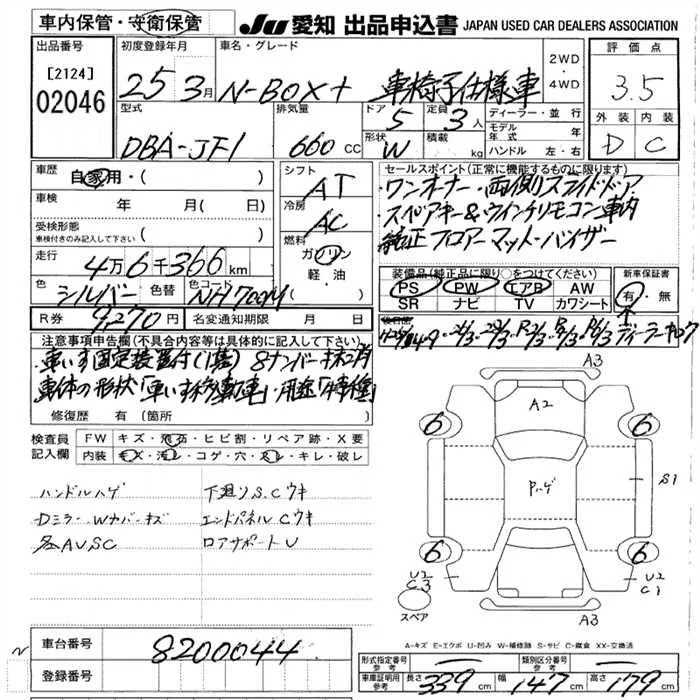 車内保管・守衛保管
JU 愛知 出品申込書 JAPAN USED CAR DEALERS ASSOCIATION
出品番号
[2124]
02046
初度登録年月
25 3月
車名・グレード
N-BOX+ 車椅子仕様車
2WD・4WD
評価点
3.5
外装 内装
D C
型式
DBA-JF1
排気量
660 CC
ドア
5
形状
W
定員
3人
積載 kg
ディーラー・並行
モデル年式 年
ハンドル 左・右
車歴
自家用・( )
車検 年 月( 日)
受検形態
車検付きのみ記入して下さい ・( )
走行
4万6千366km
色
シルバー
色替
色コード
NH700M
R券 9,270円
名変通知期限 月 日
シフト
AT
冷房
AC
燃料
ガソリン
軽・油
セールスポイント(正常に機能するものに限ります)
・ワンオーナー・両側スライドドア
・スペアキー&ウインチリモコン車内
・純正フロアーマット・バイザー
装備品(純正品に限り○をつけてください)
PS PW エアB AW
SR ナビ TV カワシート
新車保証書
有・無
ディーラー
注意事項申告欄(不具合内容等は具体的に記入して下さい)
車いす固定装置付(1基) 8ナンバー
車体の形状「車いす移動車」・用途「特種」
修復歴 有(箇所 )
検査員記入欄
FW キズ・飛石・ヒビ割・リペア跡・X要
内装 キズ・汚レ・コゲ・穴・スレ・キレ・破レ
ハンドルハゲ
Dミラー・Wナバーキズ
各AUSC
下廻りS.Cウキ
エンドパネルCウキ
ロアサポートU
A3
A2
6
6
P.ハゲ
S1
6
6
U2
C3
U2
C1
スペア
A3
A-キズ E-エクボ U-凹み W-補修跡 S-サビ C-腐食 XX-交換済
車台番号 8200044
登録番号
形式指定番号 参考
類別区分番号 参考
車庫証明用参考 長さ 339cm 幅 147cm 高さ 179cm
N